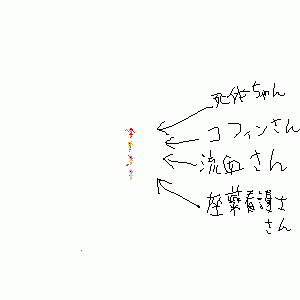 死体ちゃん
コフィンさん
流血さん
座薬看護士
さん